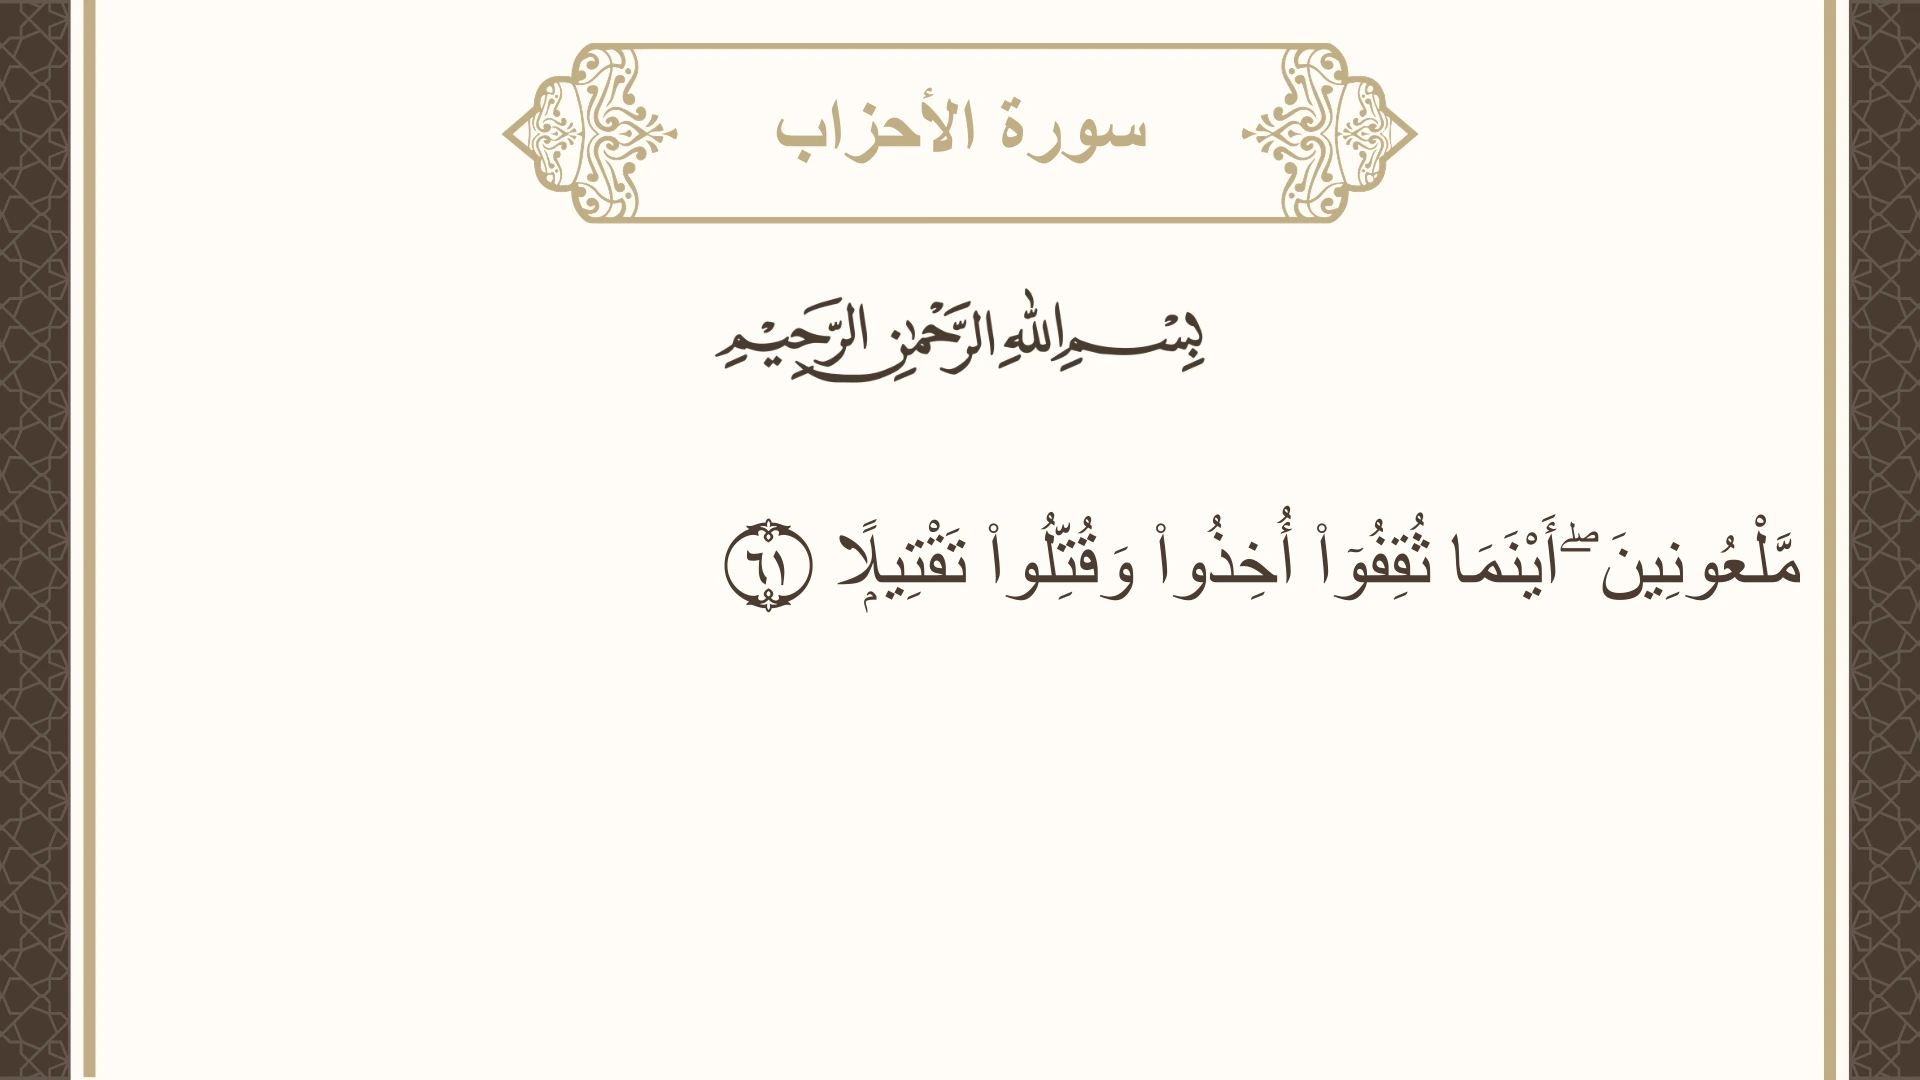 سورة الأحزاب
بِسْمِ اللهِ الرَّحْمٰنِ الرَّحِيْمِ
مَّلْعُونِينَ ۖ أَيْنَمَا ثُقِفُوٓا۟ أُخِذُوا۟ وَقُتِّلُوا۟ تَقْتِيلًۭا ٦١